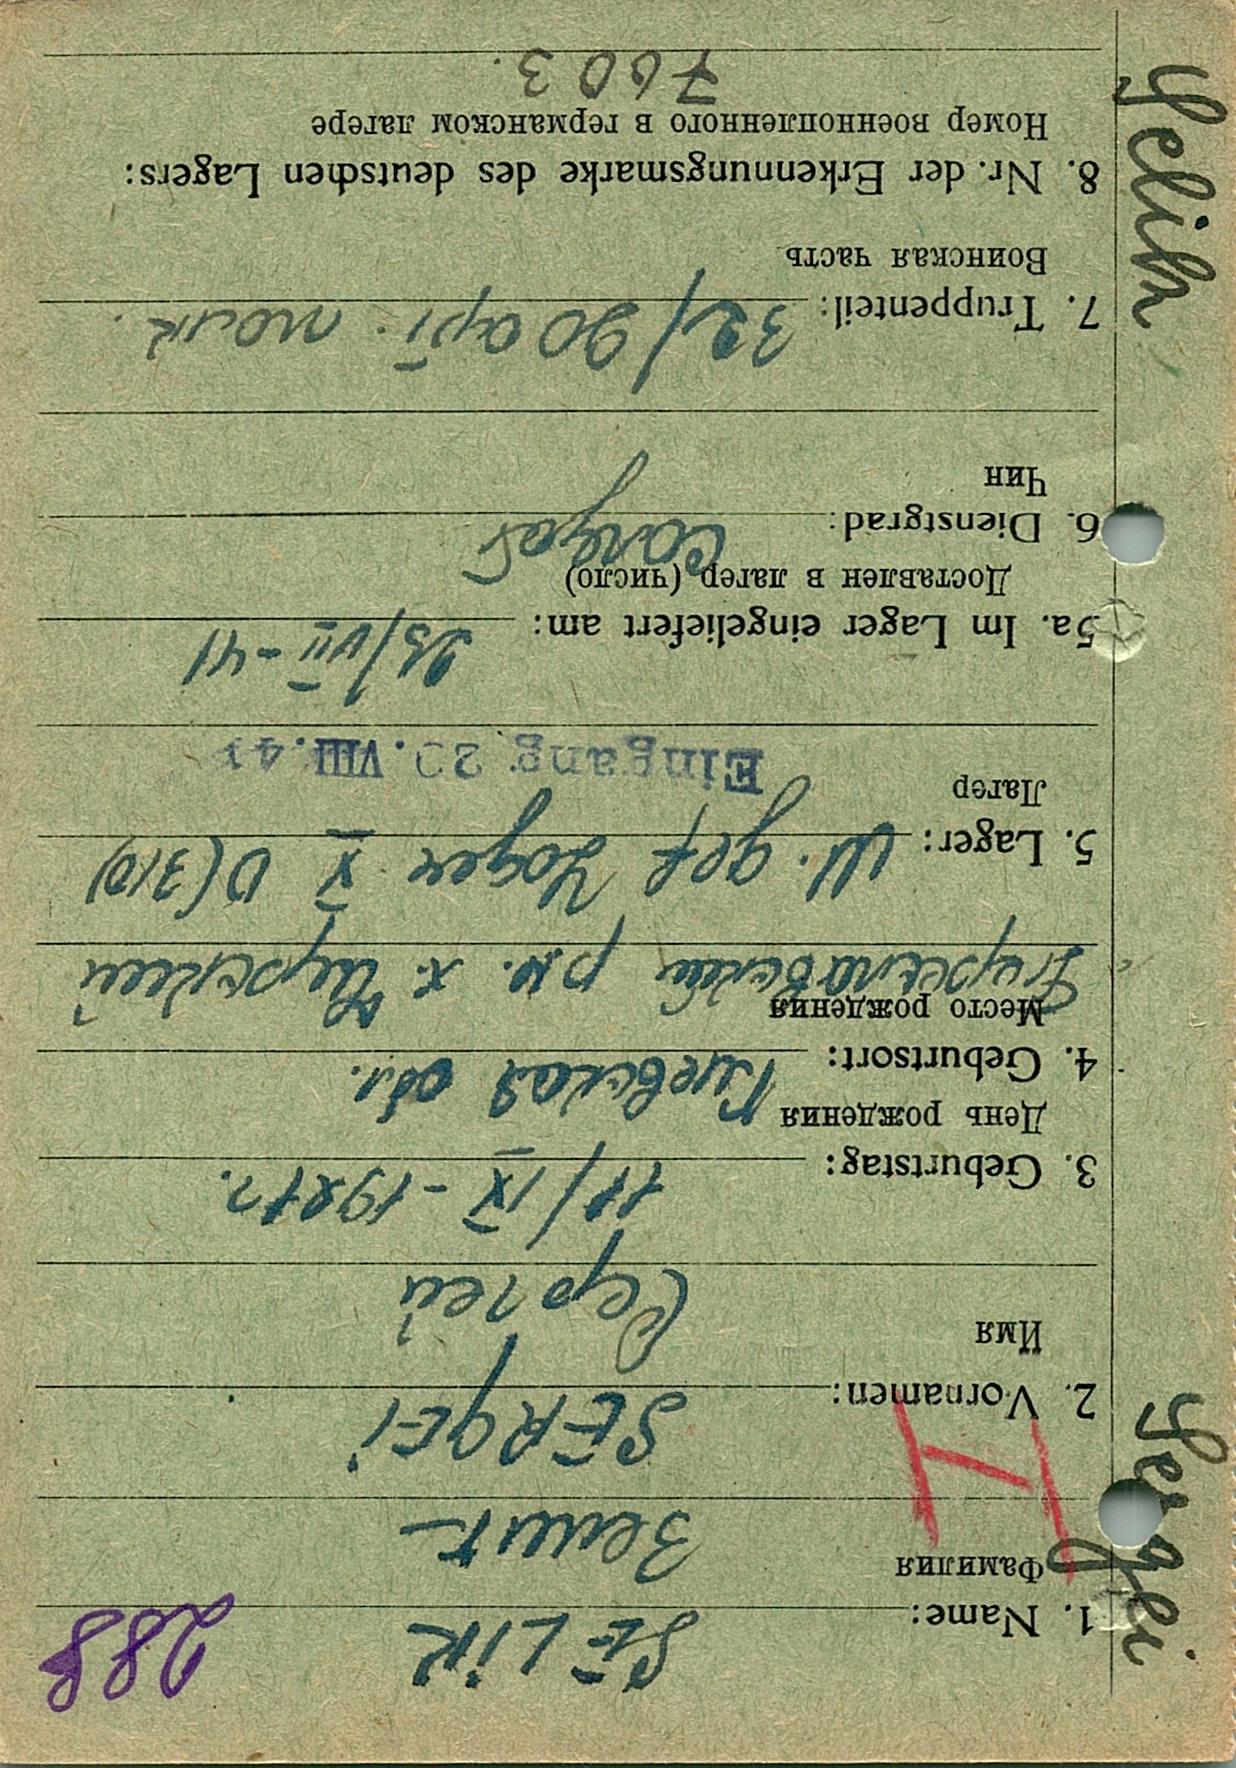 288
1. Name: SELIK
Фамилия
Зелик
2. Vornamen: SERGEI
Имя
Сергей
3. Geburtstag: 11/IX - 1921 г.
День рождения
4. Geburtsort: Киевская обл.
Место рождения
р.н. х.
5. Lager: Lager X D (310)
Лагер
Eingang 20. VIII. 41
5a. Im Lager eingeliefert am: 23/VII-41
Доставлен в лагер (число)
6. Dienstgrad:
Чин
7. Truppenteil: 32/90 арт. полк.
Воинская часть
8. Nr. der Erkennungsmarke des deutschen Lagers:
Номер военнопленного в германском лагере
7603.
H
Selik
Sergei